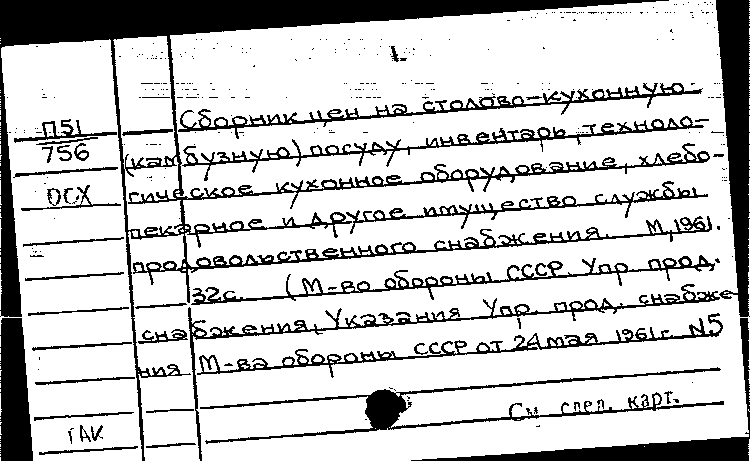 1.
П51
756
ОСХ
Сборник цен на столово-кухонную
(камбузную) посуду, инвентарь, техноло-
гическое кухонное оборудование, хлебо-
пекарное и другое имущество службы
продовольственного снабжения. М, 1961.
32с. (М-во обороны СССР. Упр. прод.
снабжения, Указания Упр. прод. снабже-
ния М-ва обороны СССР от 24 мая 1961 г. №5
См. след. карт.
ГАК